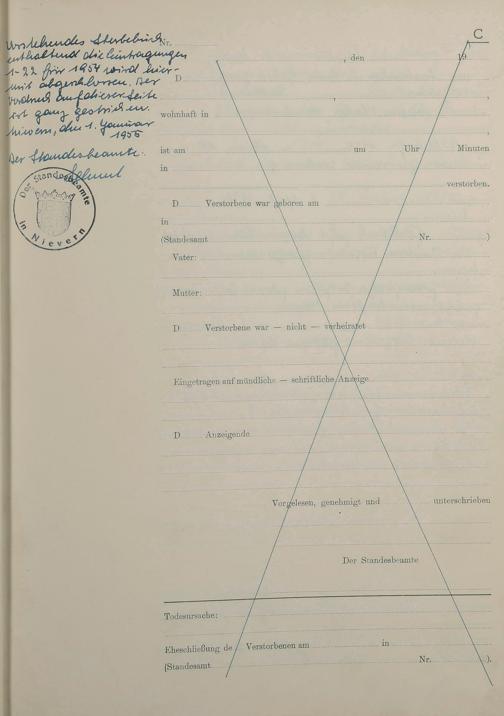 Vorstehendes Sterbebuch
enthaltend die Eintragungen
1-22 für 1954 wird hier-
mit abgeschlossen. Der
Vordruck auf dieser Seite
ist ganz gestrichen.
Nievern, den 1. Januar
1955
Der Standesbeamte:
Der Standesbeamte
in Nievern
C
Nr.
, den 19
D
,
wohnhaft in
,
ist am um Uhr Minuten
in
verstorben.
D Verstorbene war geboren am
in
(Standesamt Nr. )
Vater:
Mutter:
D Verstorbene war — nicht — verheiratet
Eingetragen auf mündliche — schriftliche Anzeige
D Anzeigende
Vorgelesen, genehmigt und unterschrieben
Der Standesbeamte
Todesursache:
Eheschließung de Verstorbenen am in
(Standesamt Nr. ).